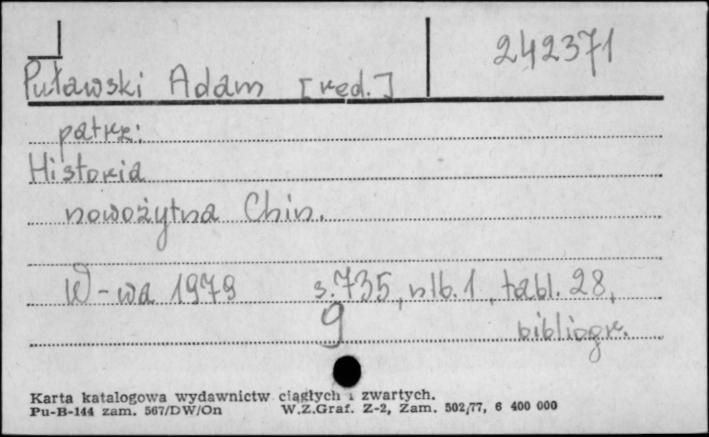 242371
Puławski Adam [red.]
patrz:
Historia
nowożytna Chin.
W-wa 1979 s. 735, nlb. 1, tabl. 28,
9 bibliogr.
Karta katalogowa wydawnictw ciągłych i zwartych.
Pu-B-144 zam. 567/DW/On W.Z.Graf. Z-2, Zam. 502/77, 6 400 000